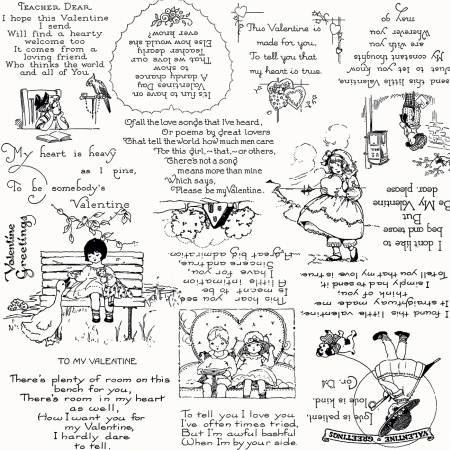 TEACHER DEAR
I hope this Valentine
I send
Will find a hearty
welcome too
It comes from a
loving friend
Who thinks the world
and all of You.
It's fun to have on
Valentines Day
A dandy chance
to say
That to show our love for
teacher dearly
Else how would she
ever know?
This Valentine is
made for you,
To tell you that
my heart is true.
I send this little Valentine
Just to let you know
My constant thoughts
are with you
Wherever you
may go
Of all the love songs that I've heard,
Or poems by great lovers
That tell the world how much men care
For this girl, ~ that, ~ or others,
There's not a song
means more than mine
Which says,
Please be my Valentine.
My heart is heavy
as I pine,
To be somebody's
Valentine
Valentine
Greetings
I don't like to
beg and tease
But
Be My Valentine
dear, please
This heart you see
Is meant to be
A little intimation
I have for you,
Sincere and true
A great big admiration.
I found this little Valentine,
It straightway made me
think of you,
I simply had to send it
To tell you that my love is true.
TO MY VALENTINE
There's plenty of room on this
bench for you,
There's room in my heart
as well,
How I want you for
my Valentine,
I hardly dare
to tell.
To tell you I love you
I've often times tried,
But I'm awful bashful
When I'm by your side.
Love is patient,
Love is kind
VALENTINE GREETINGS